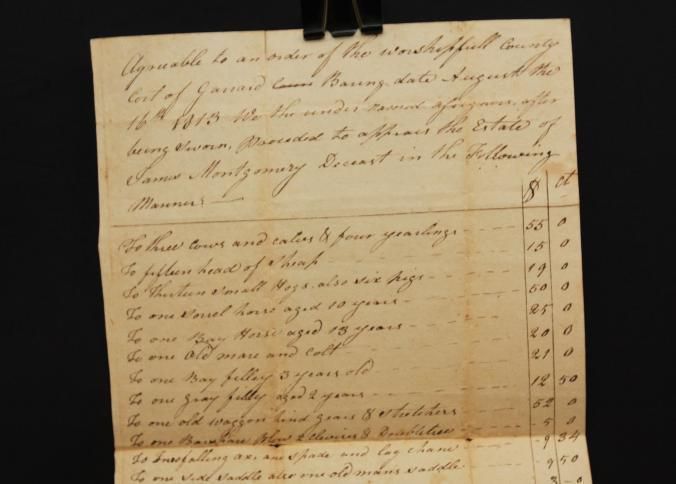 Agreeable to an order of the worshipfull County
Cort of Garrard Baring date August the
16th 1813 We the under named after
being Sworn, Proceded to appraise the Estate of
James Montgomery Deceast in the Following
Manner: —
$ ct
To three Cows and calves & four yearlings 55 0
To fifteen head of Sheap 15 0
To thirteen small Hogs also six pigs 19 0
To one sorrel horse aged 10 years 50 0
To one Bay Horse aged 13 years 25 0
To one Old mare and Colt 20 0
To one Bay filley 3 years old 21 0
To one gray filley aged 2 years 12 50
To one old waggon hind gears & stretchers 52 0
To one Bare Plow 2 Clevises & Doubletree 5 0
To falling axe one spade and log chane 9 34
To one side saddle also one old mans saddle 9 50
3 0